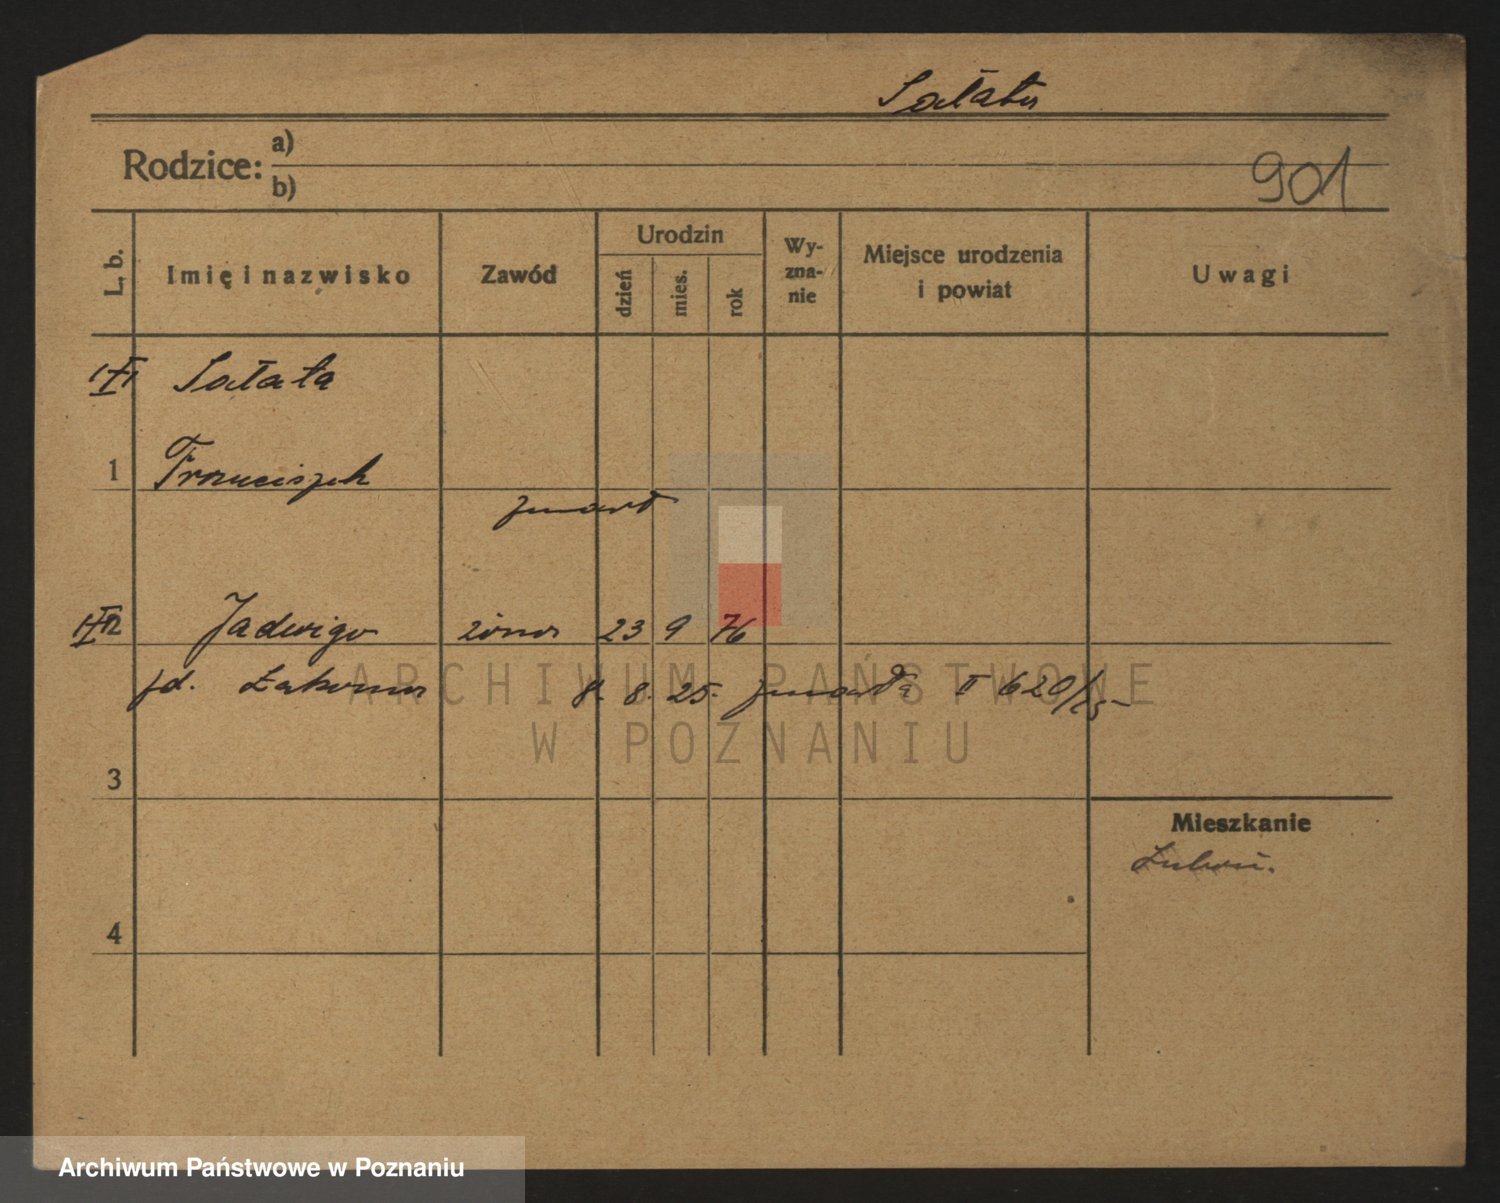 Sałata
Rodzice: a)
b)
901
L. b.
Imię i nazwisko
Zawód
Urodzin
dzień
mies.
rok
Wy-
zna-
nie
Miejsce urodzenia
i powiat
Uwagi
Sałata
1 Franciszek
zmarł
2 Jadwiga żona 23 9 76
8. 8. 25. zmarła II 620/25
3
Mieszkanie
4
ARCHIWUM PAŃSTWOWE
W POZNANIU
Archiwum Państwowe w Poznaniu